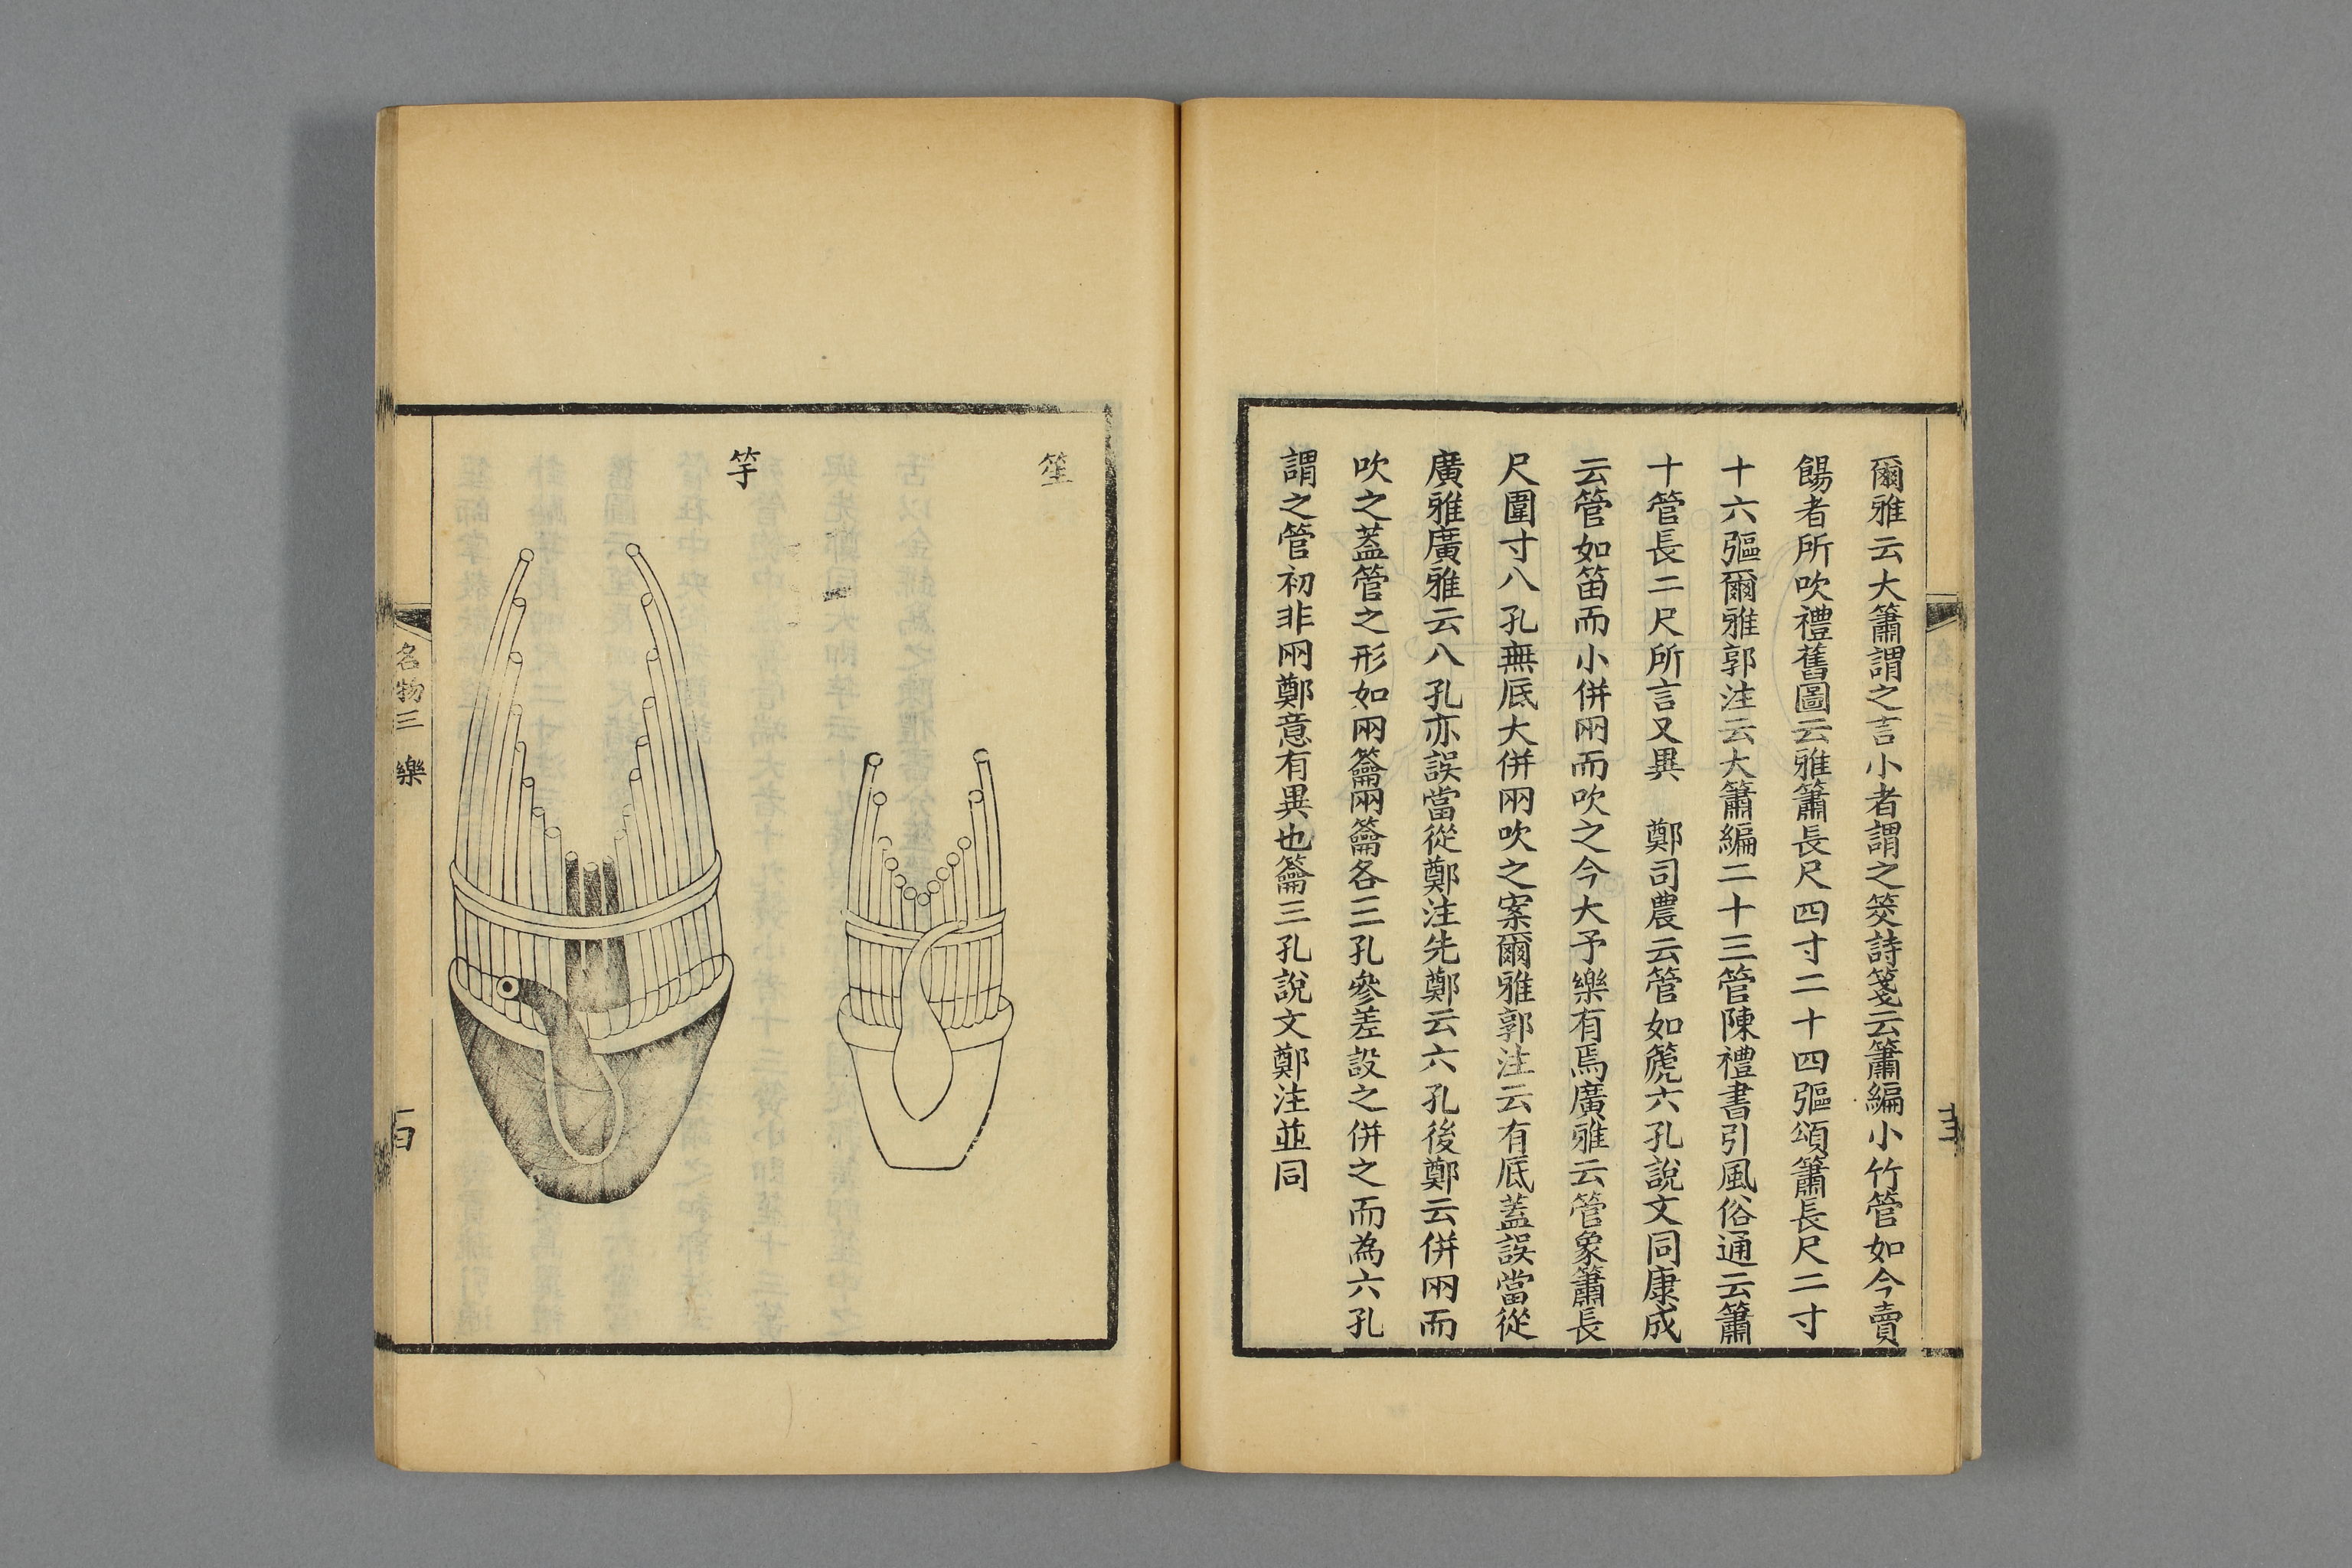 爾雅云大簫謂之言小者謂之筊詩箋云簫編小竹管如今賣
餳者所吹禮舊圖云雅簫長尺四寸二十四彄頌簫長尺二寸
十六彄爾雅郭注云大簫編二十三管陳禮書引風俗通云簫
十管長二尺所言又異　鄭司農云管如篪六孔說文同康成
云管如笛而小併兩而吹之今大予樂有焉廣雅云管象簫長
尺圍寸八孔無底大併兩吹之案爾雅郭注云有底蓋誤當從
廣雅廣雅云八孔亦誤當從鄭注先鄭云六孔後鄭云併兩而
吹之蓋管之形如兩籥兩籥各三孔參差設之併之而為六孔
謂之管初非兩鄭意有異也籥三孔說文鄭注並同
笙
竽
名物三　樂